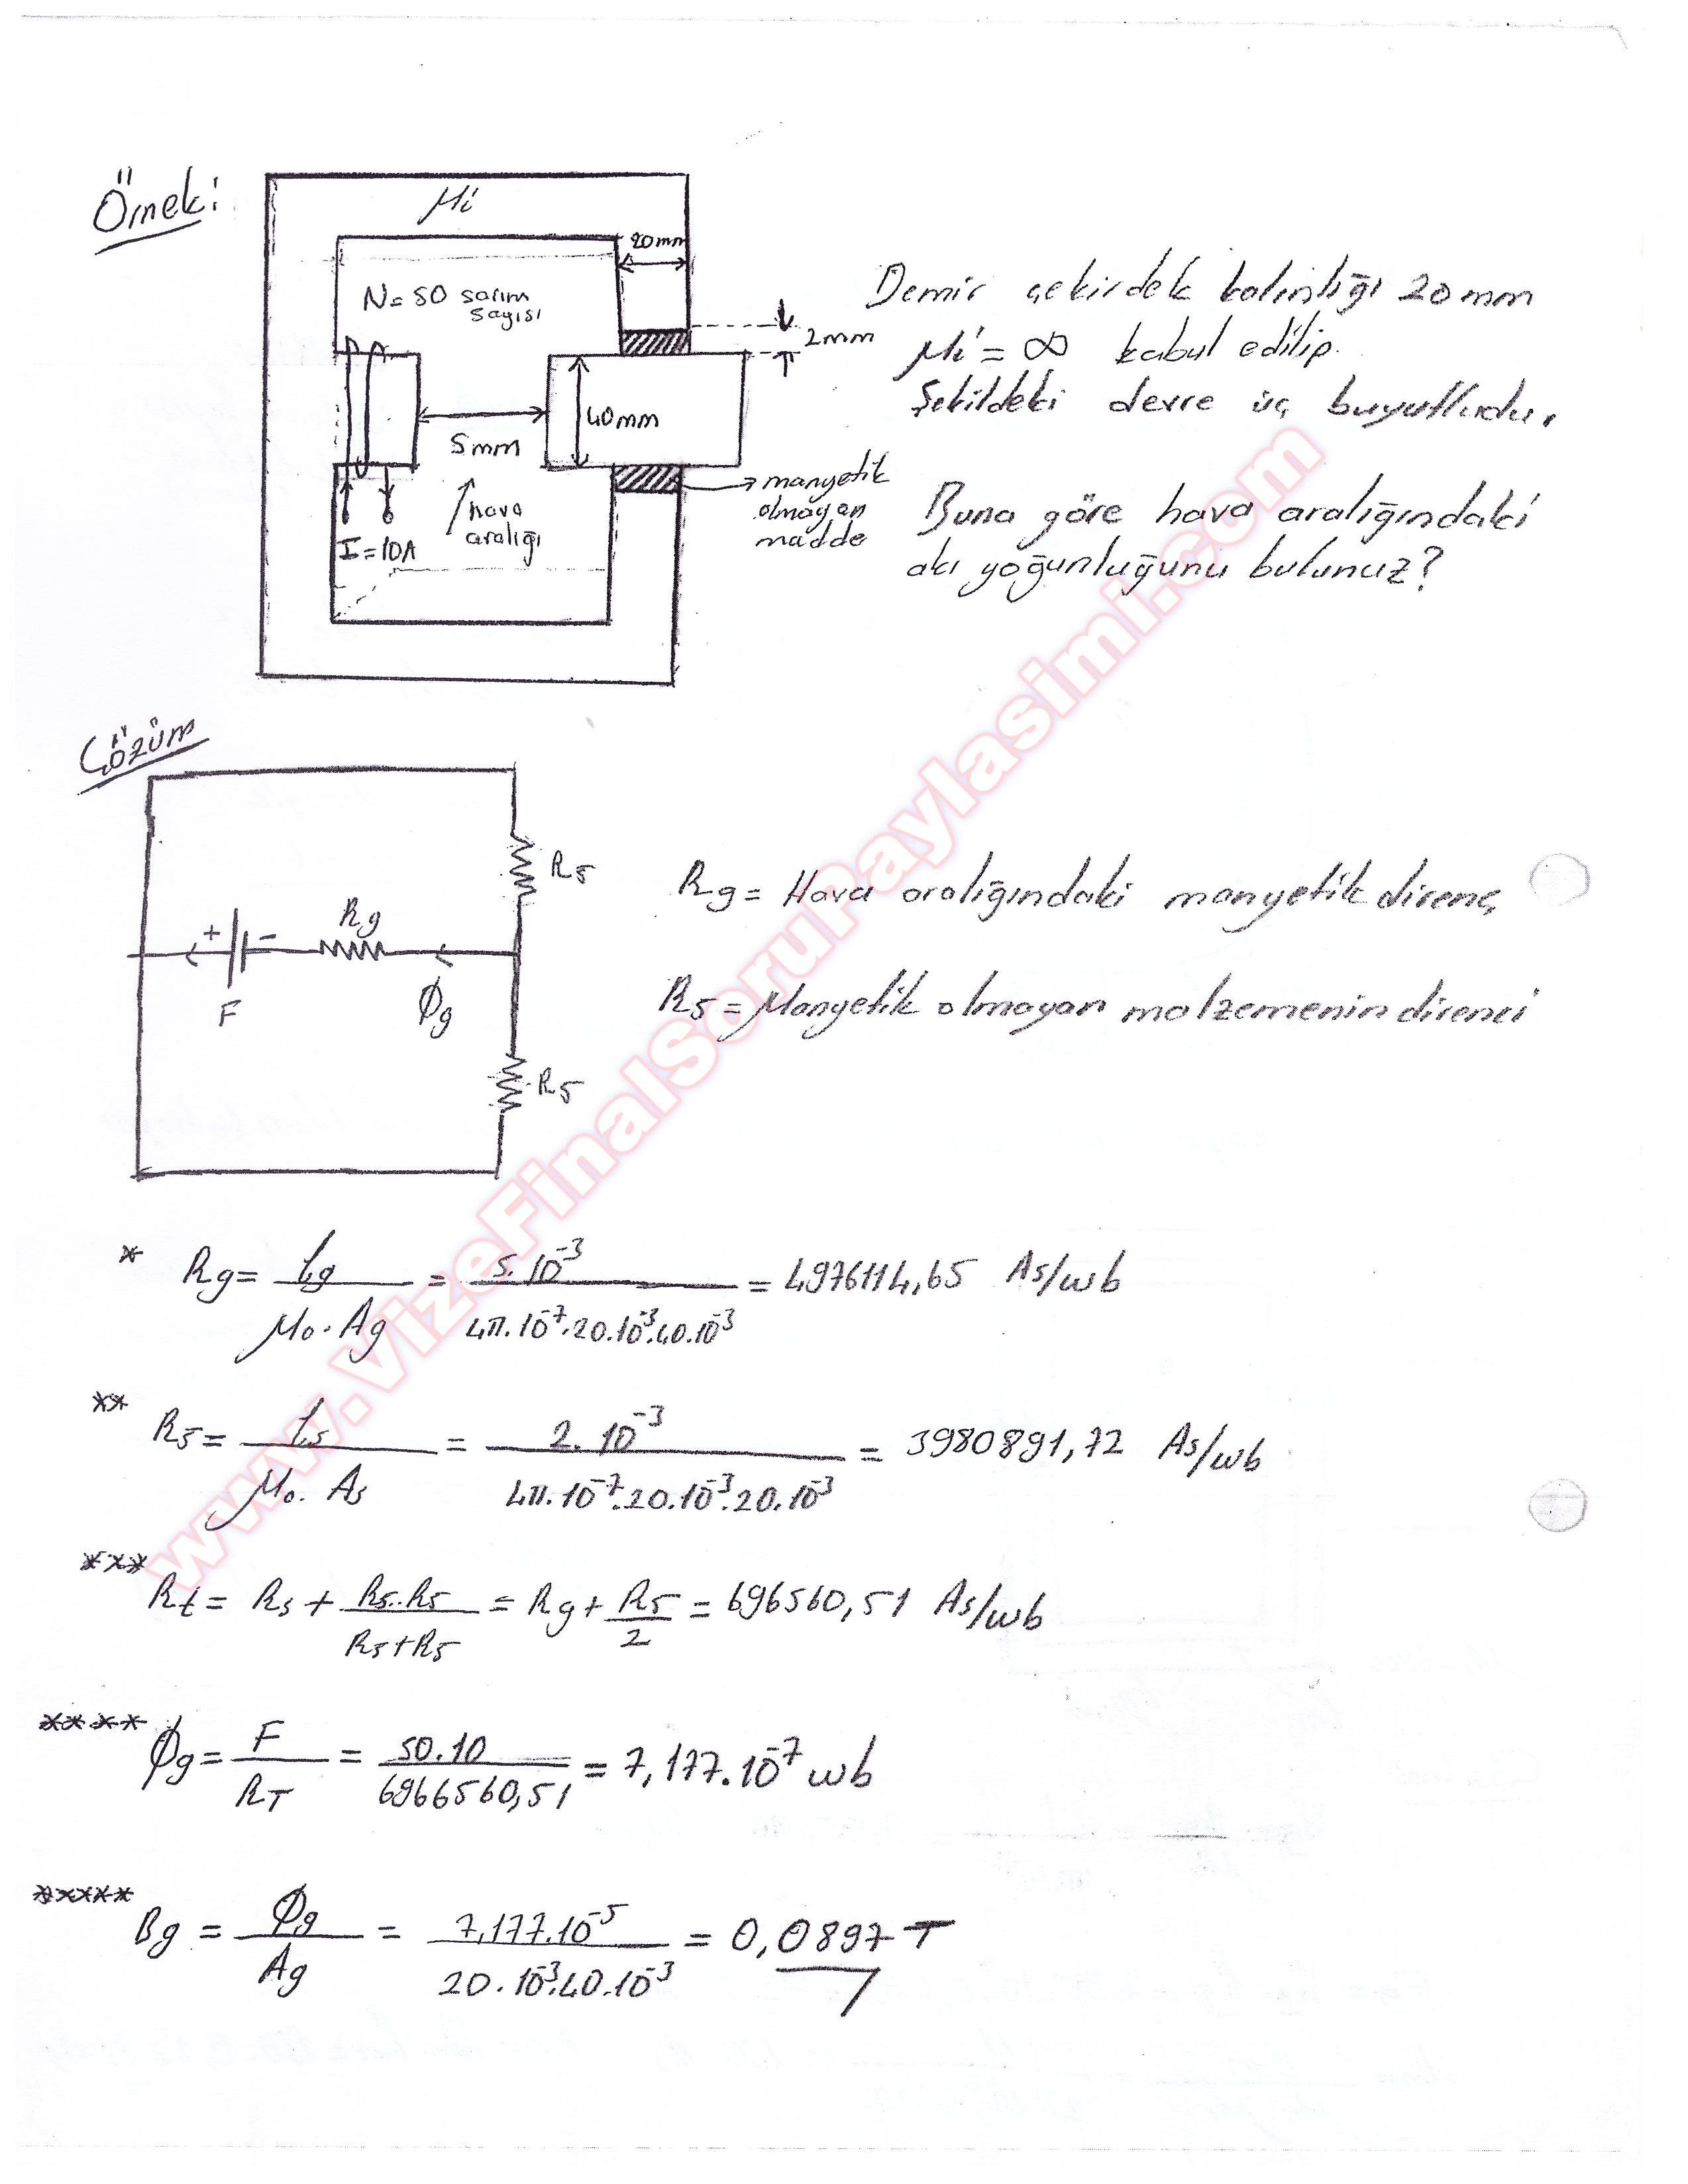 Örnek:
Mi
20mm
N=50 sarım
sayısı
2mm
40mm
5mm
I=10A
hava
aralığı
manyetik
olmayan
madde
Demir çekirdek kalınlığı 20mm
Mi = ∞ kabul edilip.
Şekildeki devre üç buyutludur.
Buna göre hava aralığındaki
akı yoğunluğunu bulunuz?
Çözüm
Rs
Rg
+ -
F
Φg
Rs
Rg = Hava aralığındaki manyetik direnç
Rs = Manyetik olmayan malzemenin direnci
* Rg = lg / μ0.Ag = 5.10^-3 / 4π.10^-7.20.10^-3.40.10^-3 = 4976114,65 As/wb
** Rs = ls / μ0.As = 2.10^-3 / 4π.10^-7.20.10^-3.20.10^-3 = 3980891,72 As/wb
*** Rt = Rs + Rs.Rs / Rs+Rs = Rg + Rs / 2 = 696560,51 As/wb
**** Φg = F / RT = 50.10 / 6966560,51 = 7,177.10^-7 wb
***** Bg = Φg / Ag = 7,177.10^-5 / 20.10^-3.40.10^-3 = 0,0897 T
www.VizeFinalSoruPaylasimi.com